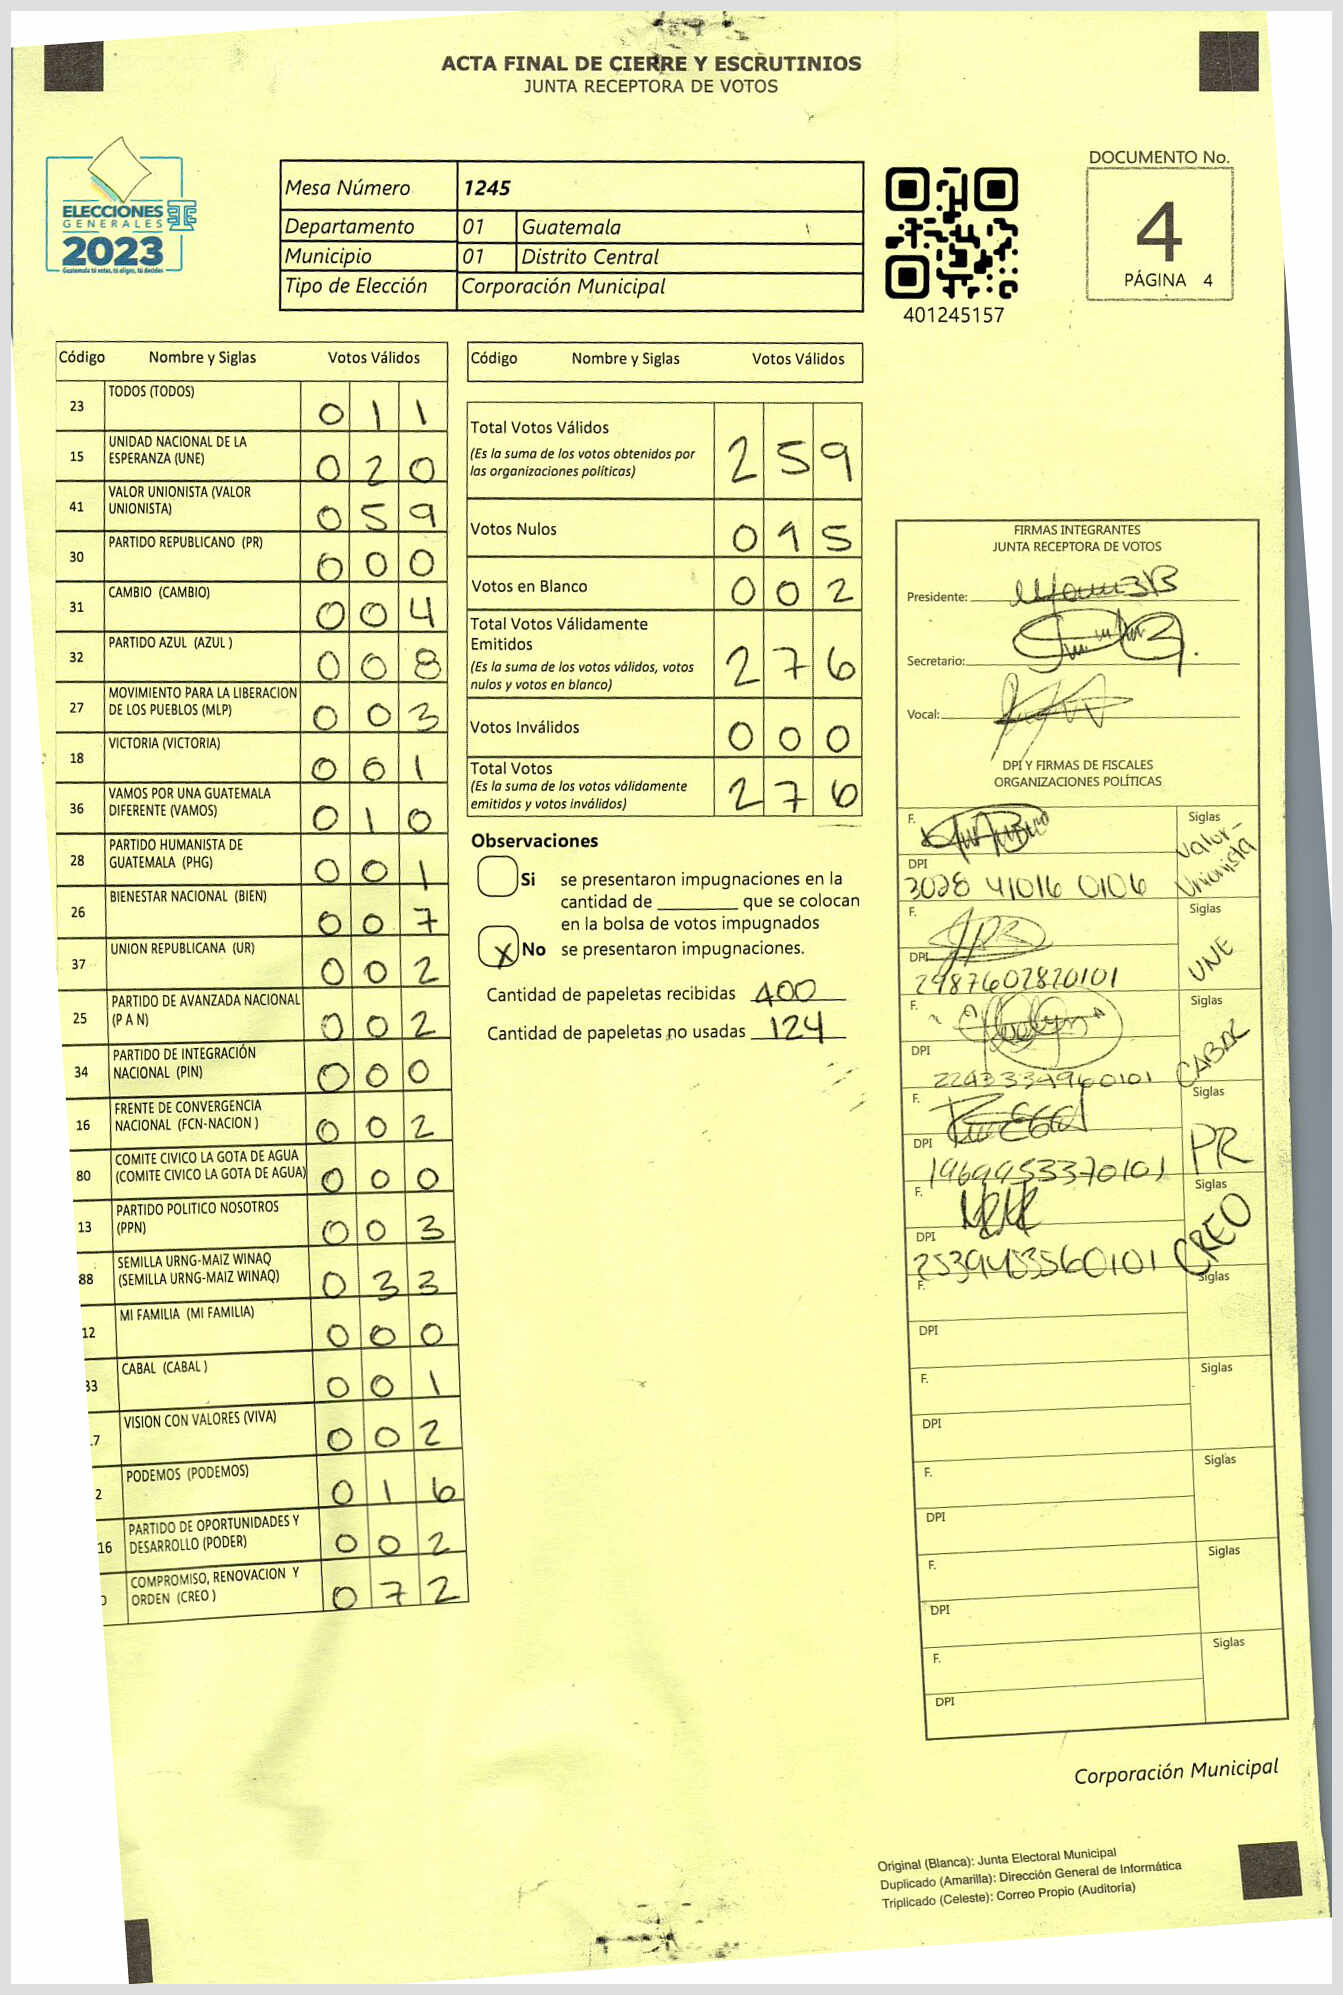 ACTA FINAL DE CIERRE Y ESCRUTINIOS
JUNTA RECEPTORA DE VOTOS
ELECCIONES
GENERALES
2023
Guatemala tú votas, tú eliges, tú decides
Mesa Número 1245
Departamento 01 Guatemala
Municipio 01 Distrito Central
Tipo de Elección Corporación Municipal
401245157
DOCUMENTO No.
4
PÁGINA 4
Código Nombre y Siglas Votos Válidos
23 TODOS (TODOS) 0 1 1
15 UNIDAD NACIONAL DE LA ESPERANZA (UNE) 0 2 0
41 VALOR UNIONISTA (VALOR UNIONISTA) 0 5 9
30 PARTIDO REPUBLICANO (PR) 0 0 0
31 CAMBIO (CAMBIO) 0 0 4
32 PARTIDO AZUL (AZUL ) 0 0 8
27 MOVIMIENTO PARA LA LIBERACION DE LOS PUEBLOS (MLP) 0 0 3
18 VICTORIA (VICTORIA) 0 0 1
36 VAMOS POR UNA GUATEMALA DIFERENTE (VAMOS) 0 1 0
28 PARTIDO HUMANISTA DE GUATEMALA (PHG) 0 0 1
26 BIENESTAR NACIONAL (BIEN) 0 0 7
37 UNION REPUBLICANA (UR) 0 0 2
25 PARTIDO DE AVANZADA NACIONAL (P A N) 0 0 2
34 PARTIDO DE INTEGRACIÓN NACIONAL (PIN) 0 0 0
16 FRENTE DE CONVERGENCIA NACIONAL (FCN-NACION ) 0 0 2
80 COMITE CIVICO LA GOTA DE AGUA (COMITE CIVICO LA GOTA DE AGUA) 0 0 0
13 PARTIDO POLITICO NOSOTROS (PPN) 0 0 3
88 SEMILLA URNG-MAIZ WINAQ (SEMILLA URNG-MAIZ WINAQ) 0 3 3
12 MI FAMILIA (MI FAMILIA) 0 0 0
33 CABAL (CABAL ) 0 0 1
7 VISION CON VALORES (VIVA) 0 0 2
2 PODEMOS (PODEMOS) 0 1 6
16 PARTIDO DE OPORTUNIDADES Y DESARROLLO (PODER) 0 0 2
COMPROMISO, RENOVACION Y ORDEN (CREO ) 0 7 2
Código Nombre y Siglas Votos Válidos
Total Votos Válidos 2 5 9
(Es la suma de los votos obtenidos por
las organizaciones políticas)
Votos Nulos 0 1 5
Votos en Blanco 0 0 2
Total Votos Válidamente
Emitidos 2 7 6
(Es la suma de los votos válidos, votos
nulos y votos en blanco)
Votos Inválidos 0 0 0
Total Votos 2 7 6
(Es la suma de los votos válidamente
emitidos y votos inválidos)
Observaciones
Si se presentaron impugnaciones en la
cantidad de ________ que se colocan
en la bolsa de votos impugnados
X No se presentaron impugnaciones.
Cantidad de papeletas recibidas 400
Cantidad de papeletas no usadas 124
FIRMAS INTEGRANTES
JUNTA RECEPTORA DE VOTOS
Presidente:
Secretario:
Vocal:
DPI Y FIRMAS DE FISCALES
ORGANIZACIONES POLÍTICAS
F. Siglas Valor-Unionista
DPI 3028 41016 0106
F. Siglas UNE
DPI 2987602820101
F. Siglas CABAL
DPI
F. Siglas PR
DPI 1969953370101
F. Siglas CREO
DPI 2539453560101
F. Siglas
DPI
F. Siglas
DPI
F. Siglas
DPI
F. Siglas
DPI
F. Siglas
DPI
Corporación Municipal
Original (Blanca): Junta Electoral Municipal
Duplicado (Amarilla): Dirección General de Informática
Triplicado (Celeste): Correo Propio (Auditoría)